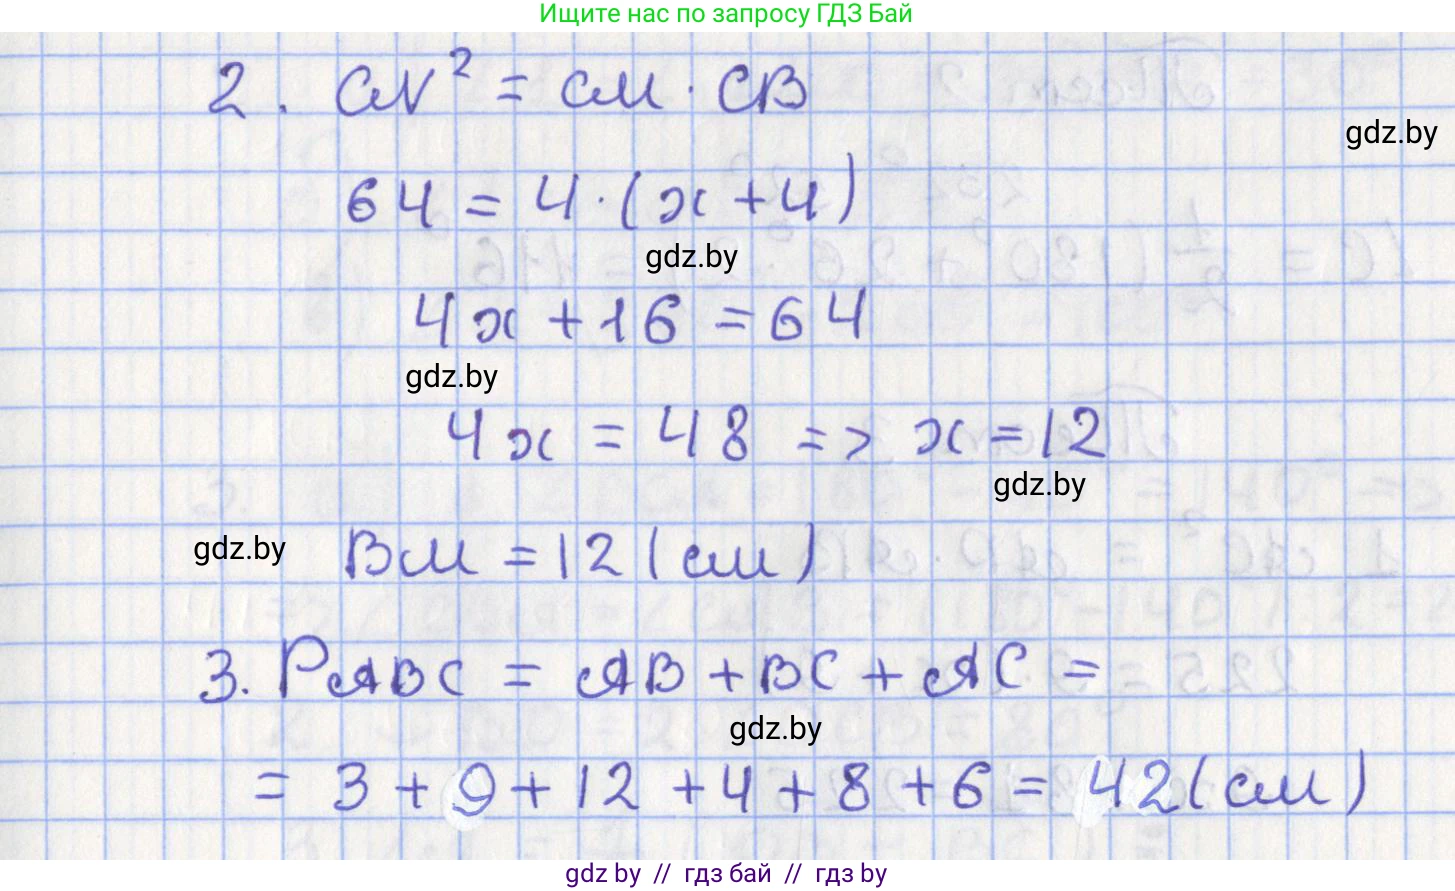 Ищите нас по запросу ГДЗ Бай
2. CN² = CM · CB
gdz.by
64 = 4 · (x + 4)
gdz.by
4x + 16 = 64
gdz.by
4x = 48 => x = 12
gdz.by
gdz.by
BM = 12 (см)
3. PABC = AB + BC + AC =
gdz.by
= 3 + 9 + 12 + 4 + 8 + 6 = 42 (см)
gdz by // гдз бай // гдз by